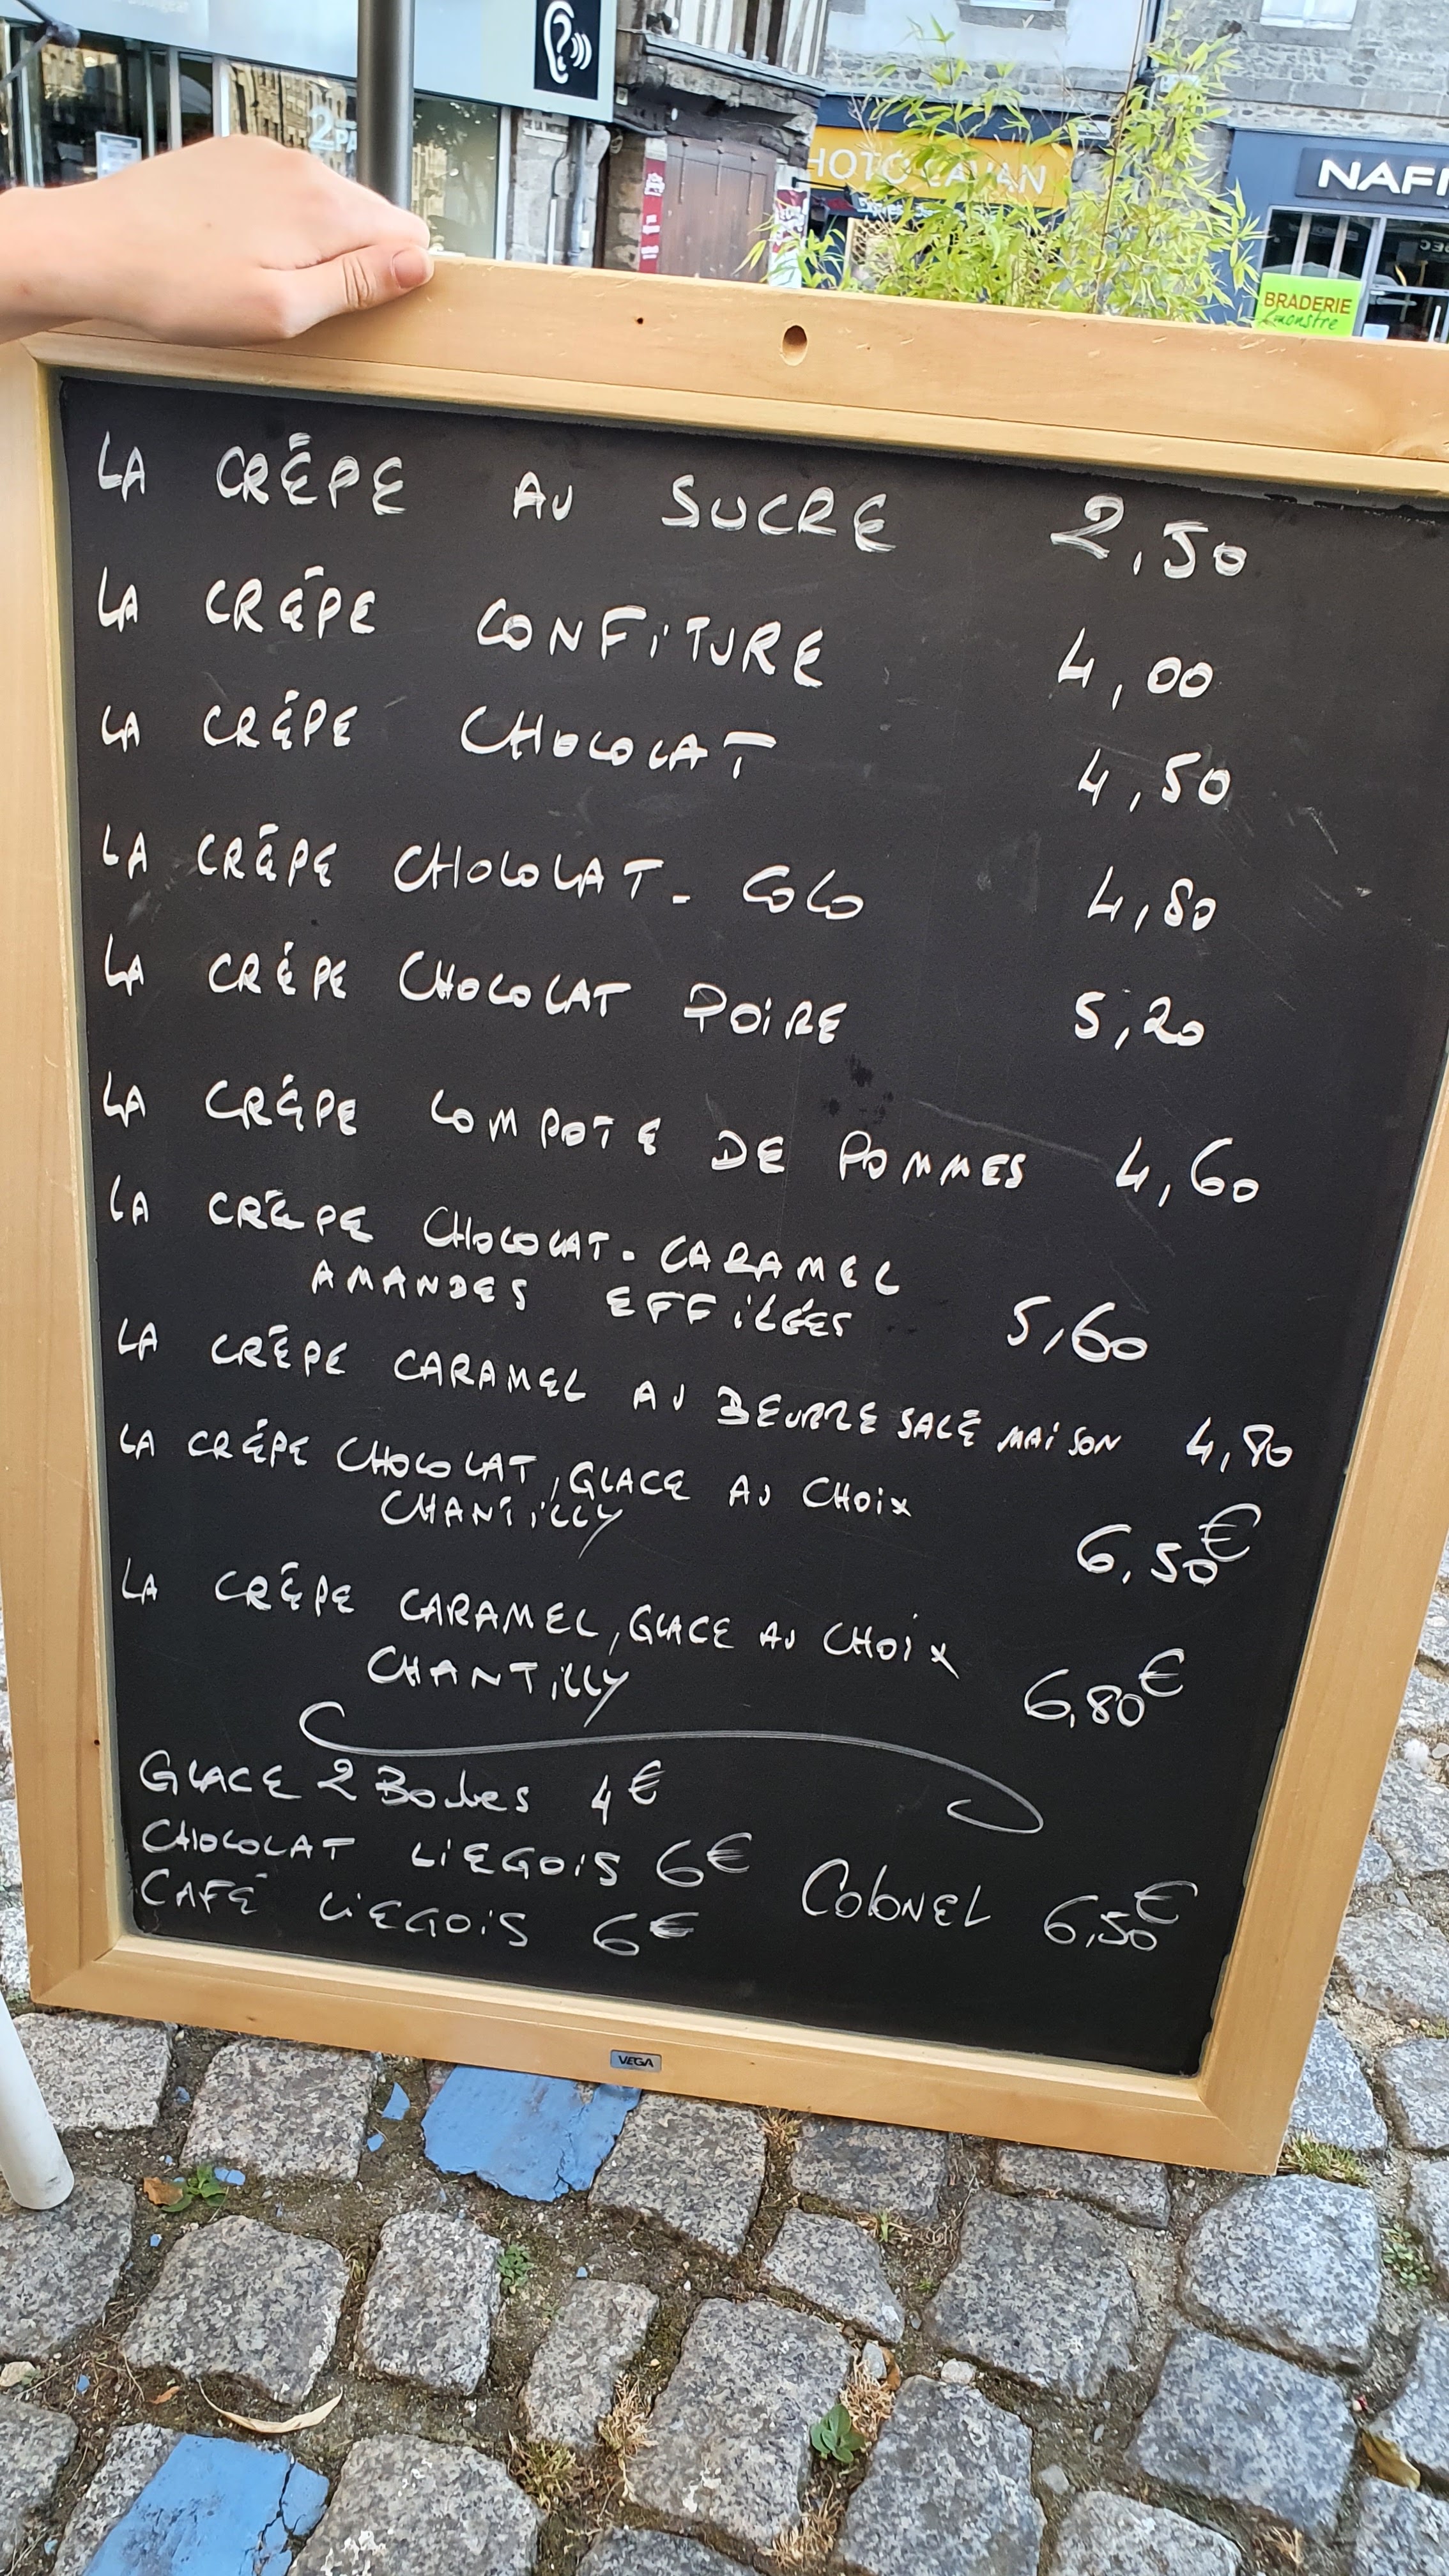 2PA
HOTO LAVAN
NAF
BRADERIE
monstre
LA CRÊPE AU SUCRE 2,50
LA CRÊPE CONFITURE 4,00
LA CRÊPE CHOCOLAT 4,50
LA CRÊPE CHOCOLAT - COCO 4,80
LA CRÊPE CHOCOLAT POIRE 5,20
LA CRÊPE COMPOTE DE POMMES 4,60
LA CRÊPE CHOCOLAT - CARAMEL
AMANDES EFFILÉES 5,60
LA CRÊPE CARAMEL AU BEURRE SALÉ MAISON 4,80
LA CRÊPE CHOCOLAT, GLACE AU CHOIX
CHANTILLY 6,50€
LA CRÊPE CARAMEL, GLACE AU CHOIX
CHANTILLY 6,80€
GLACE 2 Boules 4€
CHOCOLAT LIEGOIS 6€
CAFÉ LIEGOIS 6€ COLONEL 6,50€
VEGA